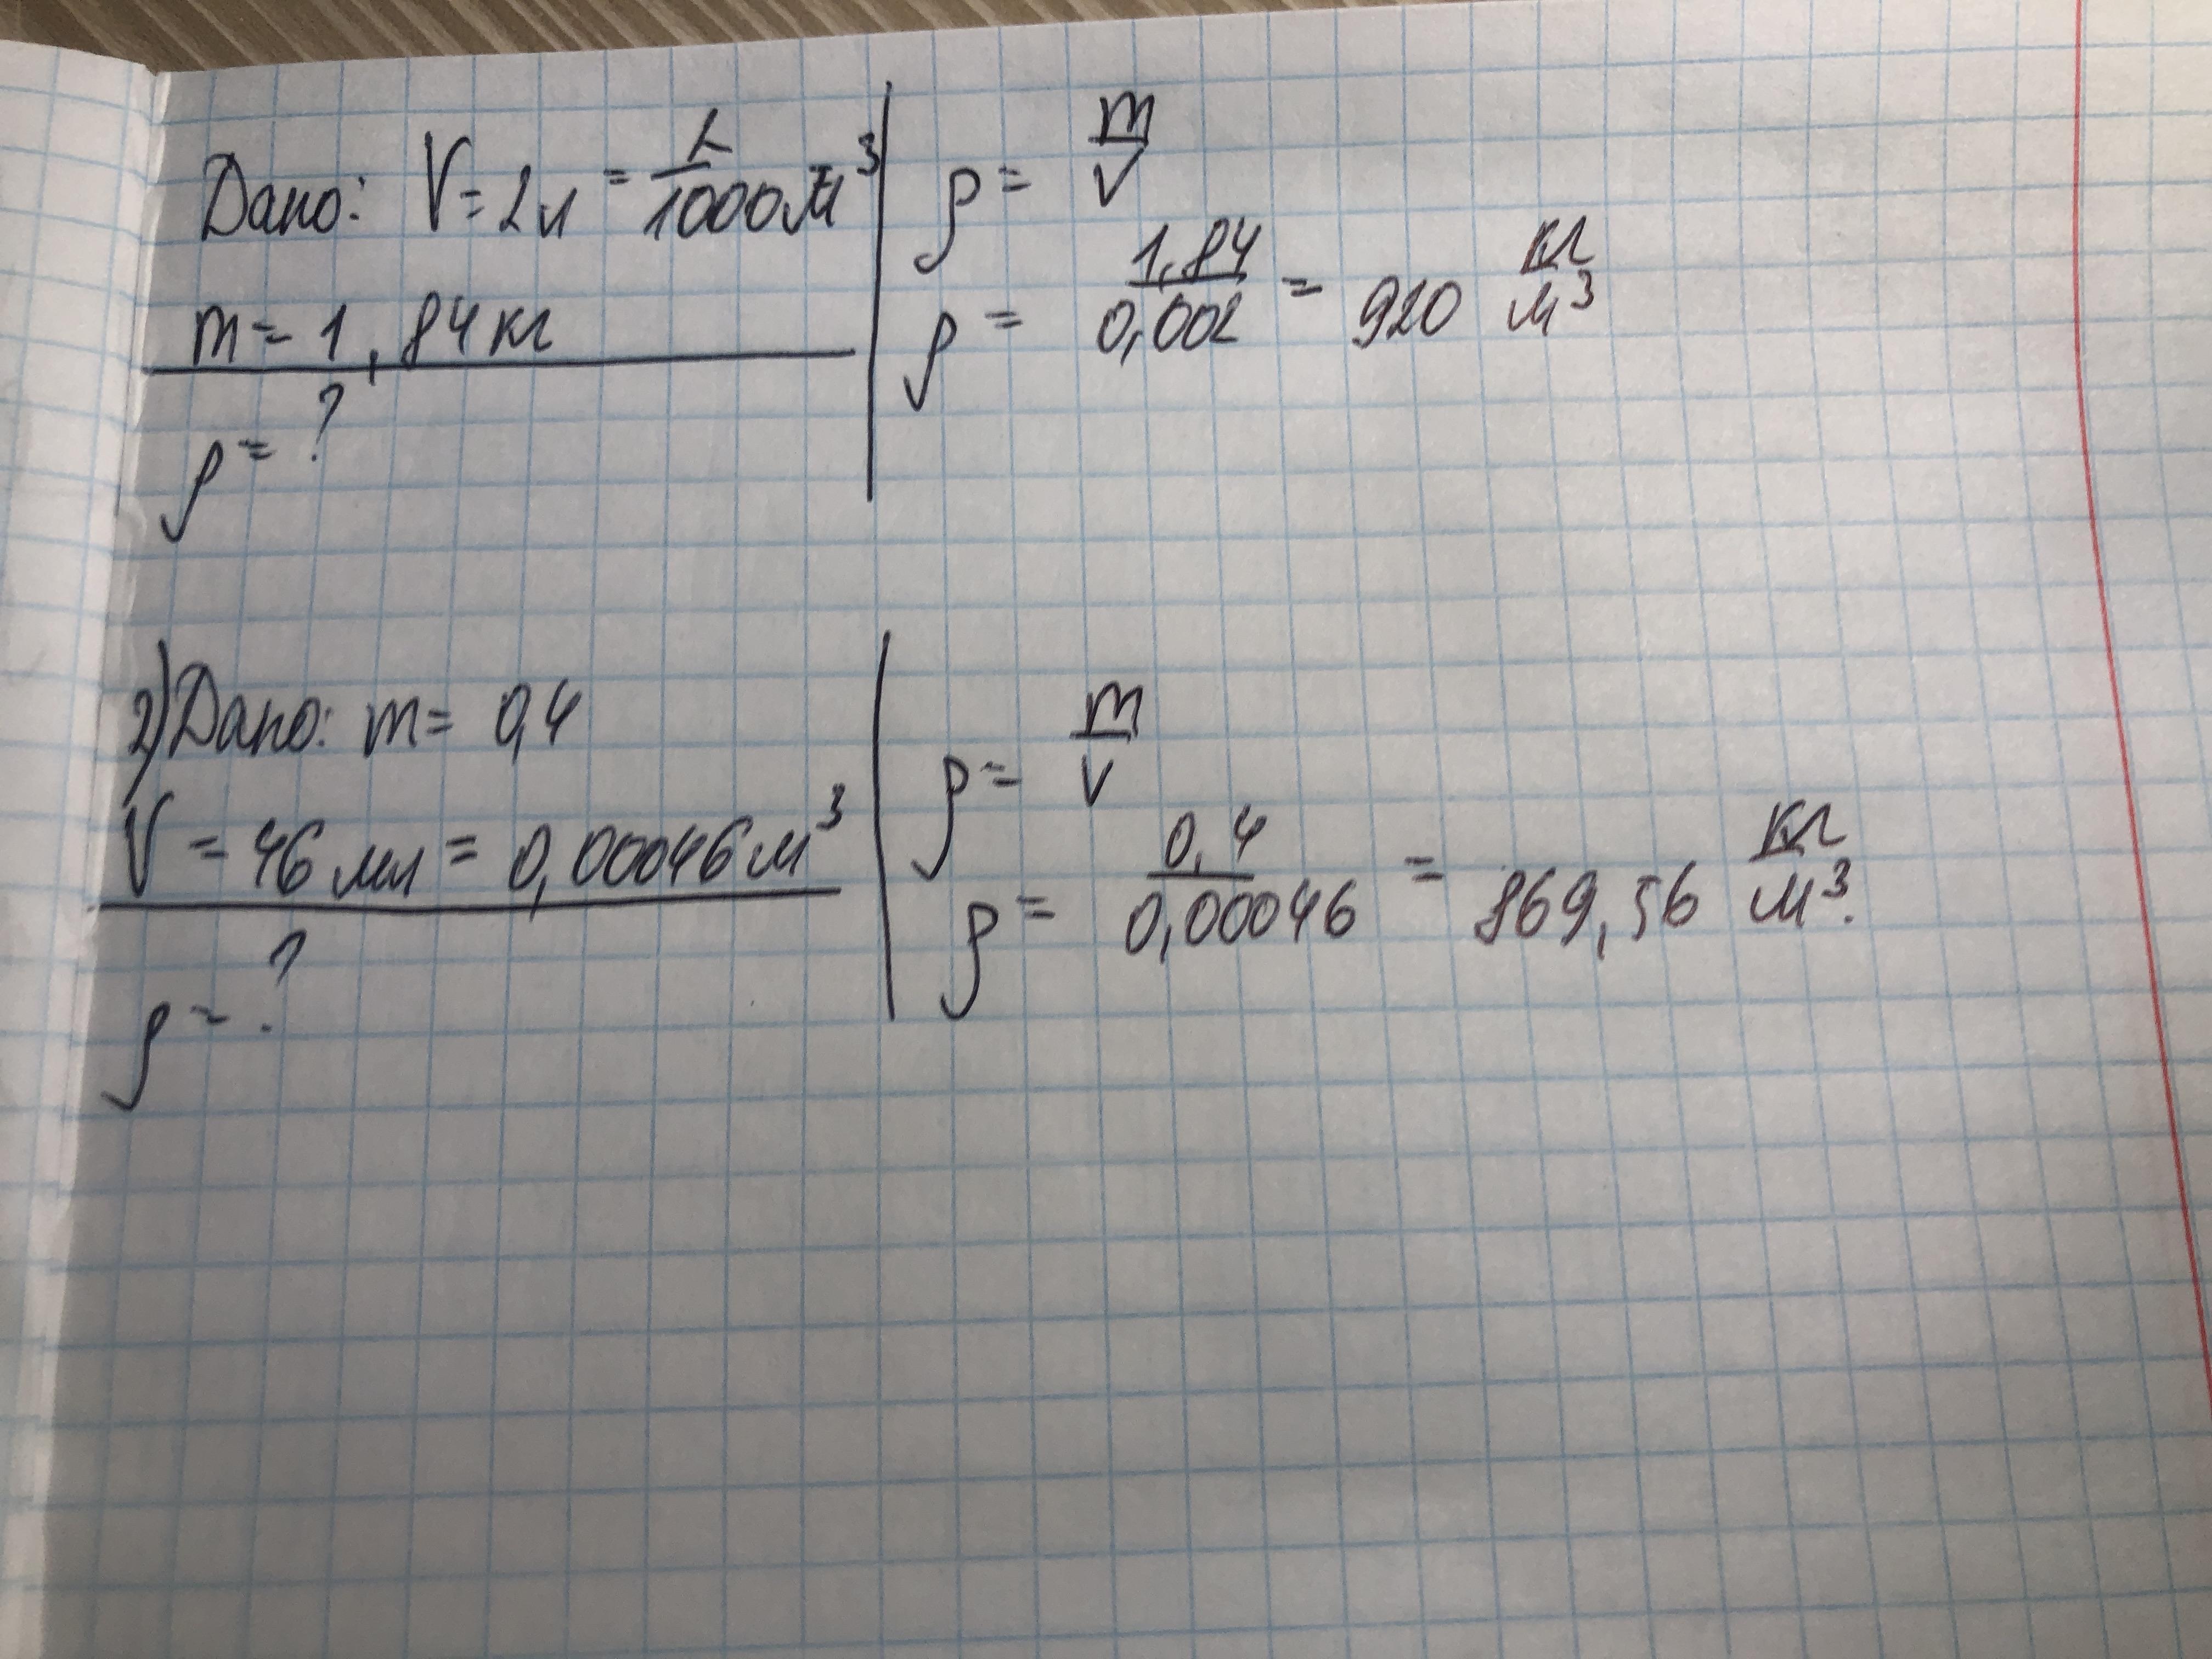 Дано: V = 2л = 2/1000 м³
m = 1,84 кг
ρ = ?
ρ = m/V
ρ = 1,84/0,002 = 920 кг/м³
2) Дано: m = 0,4
V = 46 мл = 0,00046 м³
ρ = ?
ρ = m/V
ρ = 0,4/0,00046 = 869,56 кг/м³.